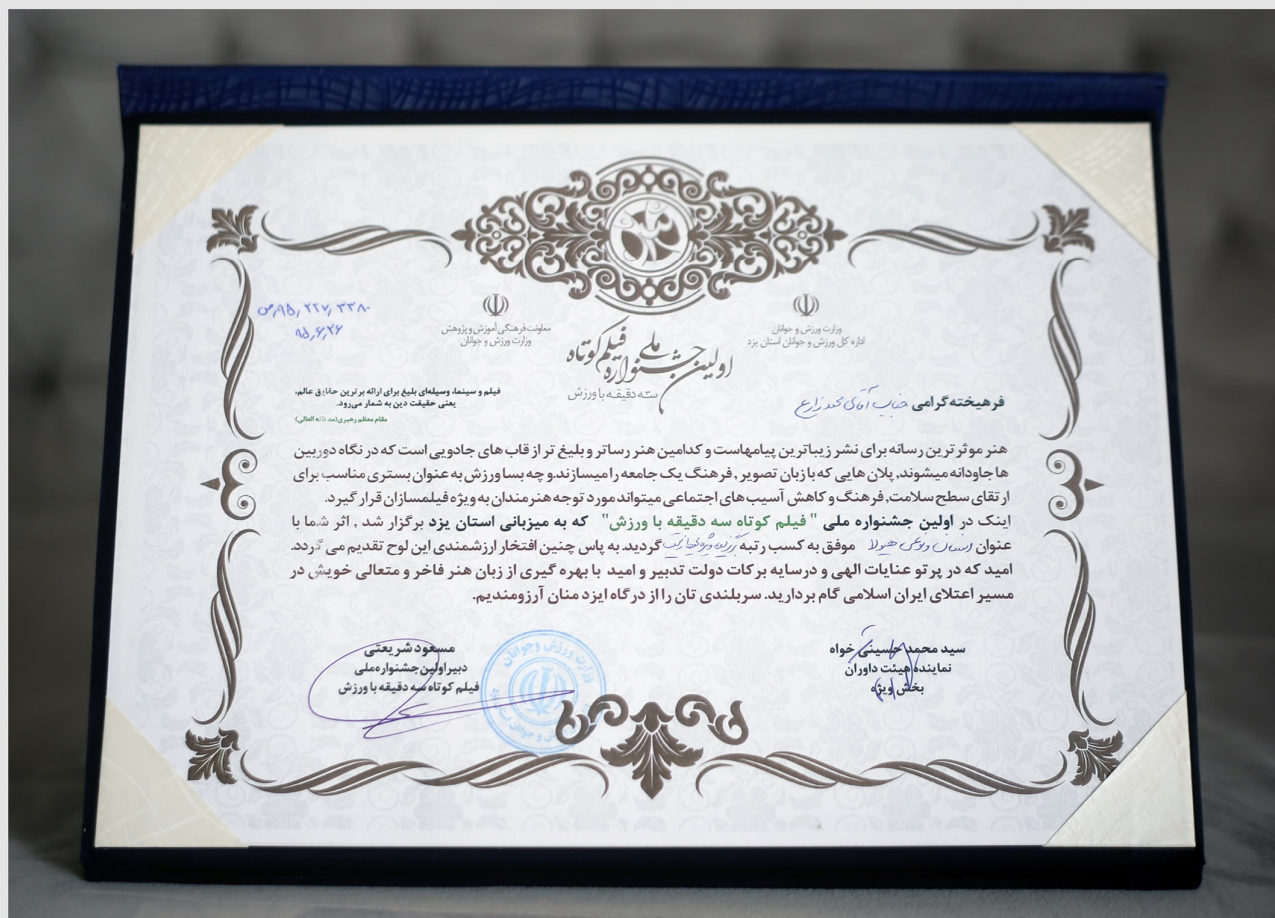 ۹۵٫۲۲۷٫۳۳۸۰٫ص
۹۵٫۶٫۲۶
وزارت ورزش و جوانان
اداره کل ورزش و جوانان استان یزد
معاونت فرهنگی آموزش و پژوهش
وزارت ورزش و جوانان
اولین جشنواره ملی فیلم کوتاه
سه دقیقه با ورزش
فیلم و سینما، وسیله‌ای بلیغ برای ارائه برترین حقایق عالم،
یعنی حقیقت دین به شمار می‌رود.
مقام معظم رهبری(مد ظله العالی)
فرهیخته گرامی جناب آقای محمد زارع
هنر موثر ترین رسانه برای نشر زیباترین پیامهاست و کدامین هنر رساتر و بلیغ تر از قاب های جادویی است که در نگاه دوربین
ها جاودانه میشوند, پلان هایی که با زبان تصویر , فرهنگ یک جامعه را میسازند.و چه بسا ورزش به عنوان بستری مناسب برای
ارتقای سطح سلامت, فرهنگ و کاهش آسیب های اجتماعی میتواند مورد توجه هنرمندان به ویژه فیلمسازان قرار گیرد.
اینک در اولین جشنواره ملی "فیلم کوتاه سه دقیقه با ورزش" که به میزبانی استان یزد برگزار شد , اثر شما با
عنوان هیولا موفق به کسب رتبه گردید. به پاس چنین افتخار ارزشمندی این لوح تقدیم می گردد.
امید که در پرتو عنایات الهی و درسایه برکات دولت تدبیر و امید با بهره گیری از زبان هنر فاخر و متعالی خویش در
مسیر اعتلای ایران اسلامی گام بردارید. سربلندی تان را از درگاه ایزد منان آرزومندیم.
سید محمد حسینی خواه
نماینده هیئت داوران
بخش ویژه
مسعود شریعتی
دبیر اولین جشنواره ملی
فیلم کوتاه سه دقیقه با ورزش
وزارت ورزش و جوانان